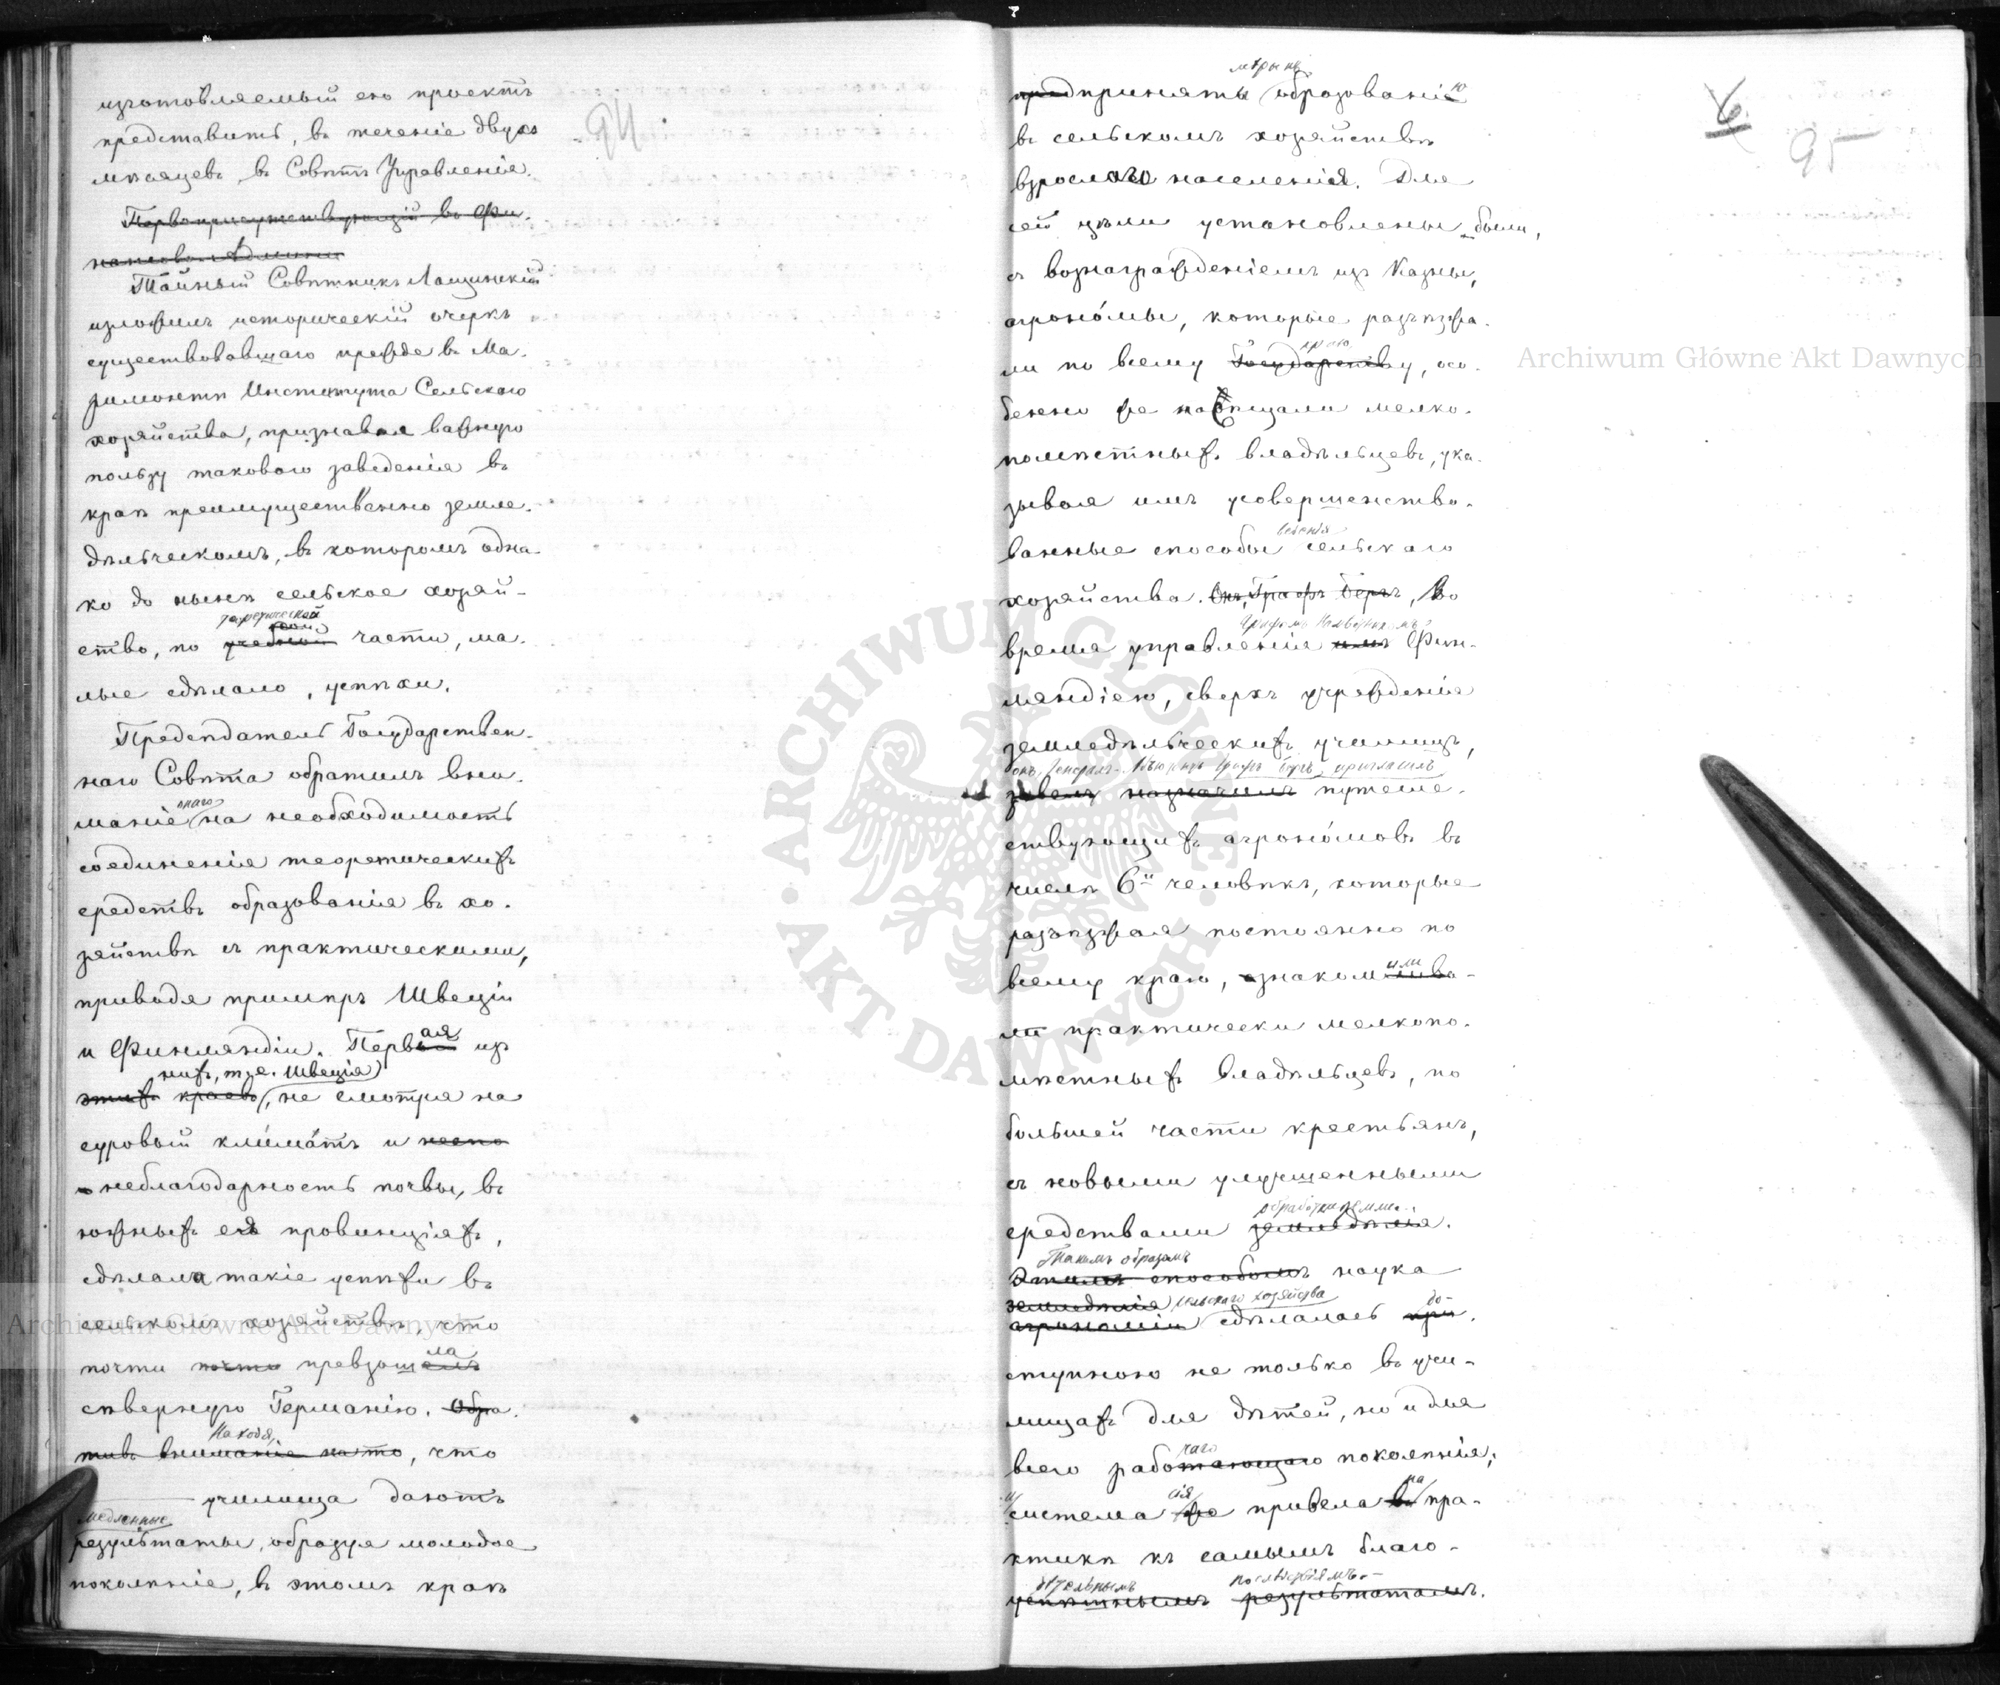 изготовляемый ею проектъ
представить, въ теченіе двухъ
мѣсяцевъ, въ Совѣтъ Управленія.
Первоприсутствующій въ Фи-
нансово-Админи
Тайный Совѣтникъ Лащинскій
изложилъ историческій очеркъ
существовавшаго прежде въ Ма-
римонтѣ Института Сельскаго
хозяйства, признавая важную
пользу таковаго заведенія въ
краѣ преимущественно земле-
дѣльческомъ, въ которомъ одна-
ко до нынѣ сельское хозяй-
теоретической
ство, по учебной части, ма-
лые сдѣлало успѣхи.
Предсѣдатель Государствен-
наго Совѣта обратилъ вни-
онаго
маніе на необходимость
соединенія теоретическихъ
средствъ образованія въ хо-
зяйствѣ съ практическими,
приводя примѣръ Швеціи
и Финляндіи. Первая изъ
нихъ, т. е. Швеція
этихъ краевъ, не смотря на
суровый климатъ и неспо
неблагодарность почвы, въ
южныхъ ея провинціяхъ,
сдѣлала такіе успѣхи въ
сельскомъ хозяйствѣ, что
ла
почти почти превзошелъ
сѣверную Германію. Обра-
Находя,
тивъ вниманіе на то, что
училища даютъ
медленные
результаты, образуя молодое
поколѣніе, въ этомъ краѣ
94
мѣры къ
предприняты образованію
въ сельскомъ хозяйствѣ
взрослаго населенія. Для
сей цѣли установлены были,
съ вознагражденіемъ изъ Казны,
агрономы, которые разъѣзжа-
краю
ли по всему Государству, осо-
бенно же навѣщали мелко-
помѣстныхъ владѣльцевъ, ука-
зывая имъ усовершенство-
веденія
ванные способы сельскаго
хозяйства. Онъ, Графъ Бергъ, Во
время управленія имъ Фин-
ляндіею, сверхъ учрежденія
земледѣльческихъ училищъ,
онъ, Генералъ-Адъютантъ Графъ Бергъ, пригласилъ
завелъ назначилъ путеше-
ствующихъ агрономовъ въ
числѣ 6и человѣкъ, которые
разъѣзжая постоянно по
всему краю, ознакомлива-
ли практически мелкопо-
мѣстныхъ владѣльцевъ, по
большей части крестьянъ,
съ новыми улучшенными
обработки земли.
средствами земледѣлія.
Такимъ образомъ
Этимъ способомъ наука
земледѣлія сельскаго хозяйства
до-
агрономіи сдѣлалась при-
ступною не только въ учи-
лищахъ для дѣтей, но и для
чаго
всего работающаго поколѣнія;
сія на
и система же привела въ пра-
ктикѣ къ самымъ благо-
дѣтельнымъ послѣдствіямъ.
успѣшнымъ результатамъ.
6.
95
Archiwum Główne Akt Dawnych
Archiwum Główne Akt Dawnych
ARCHIWUM GŁÓWNE AKT DAWNYCH